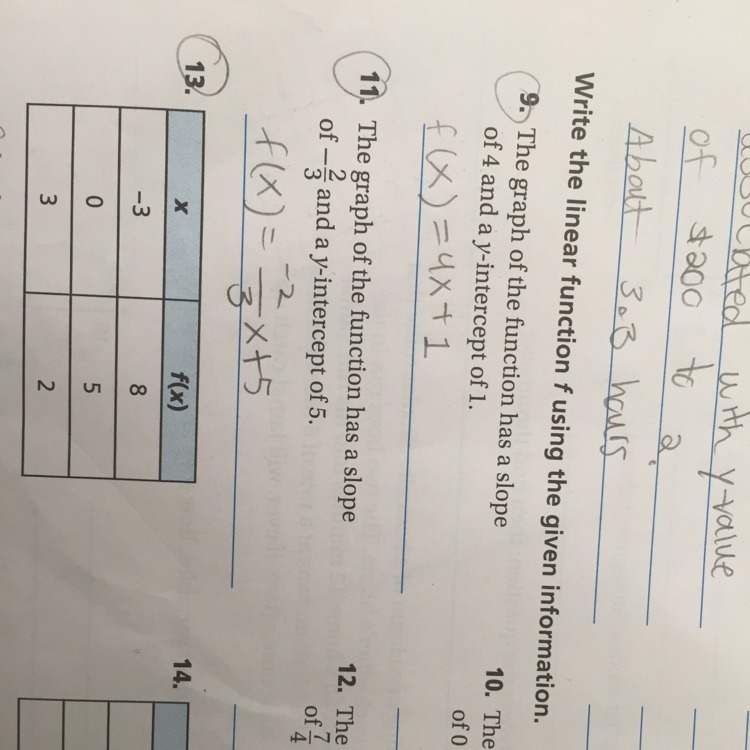 with y-value
of $200 to 2.
About 3.3 hours
Write the linear function f using the given information.
9. The graph of the function has a slope
of 4 and a y-intercept of 1.
f(x) = 4x + 1
10. The
of 0
11. The graph of the function has a slope
of -2/3 and a y-intercept of 5.
f(x) = -2/3 x + 5
12. The
of 7/4
13.
x f(x)
-3 8
0 5
3 2
14.